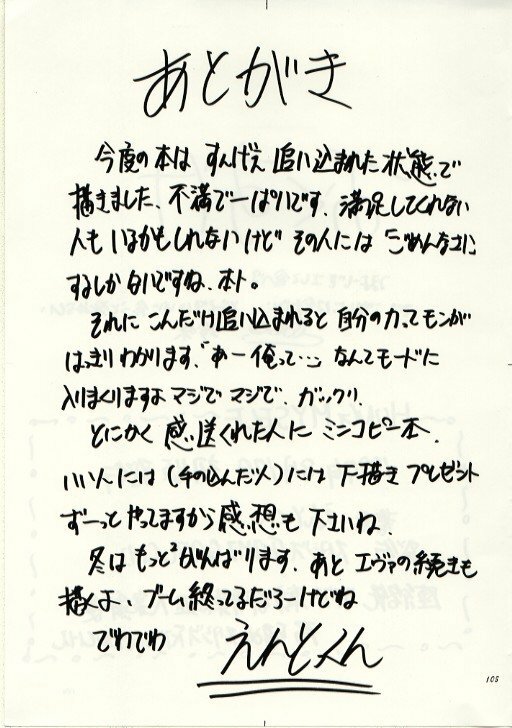 あとがき
今度の本は すんげえ 追い込まれた 状態で
描きました、不満で一ぱいです、満足してくれない
人も いるかもしれないけど その人には「ごめんなさい」
するしかないですね、ホト。
それに こんだけ追い込まれると 自分の力ってモンが
はっきりわかります、「あー俺って…」なんてモードに
入りまくりますよ マジで マジで、ガックリ、
とにかく 感想送くれた人に ミニコピー本、
いい人には (手の込んだ人)には 下描き プレゼント
ずーっと やってますから 感想も 下さいね、
冬は もっと²がんばります、あと エヴァの続きも
描くよ、ブーム終ってるだろーけどね
でわでわ えんどくん
105